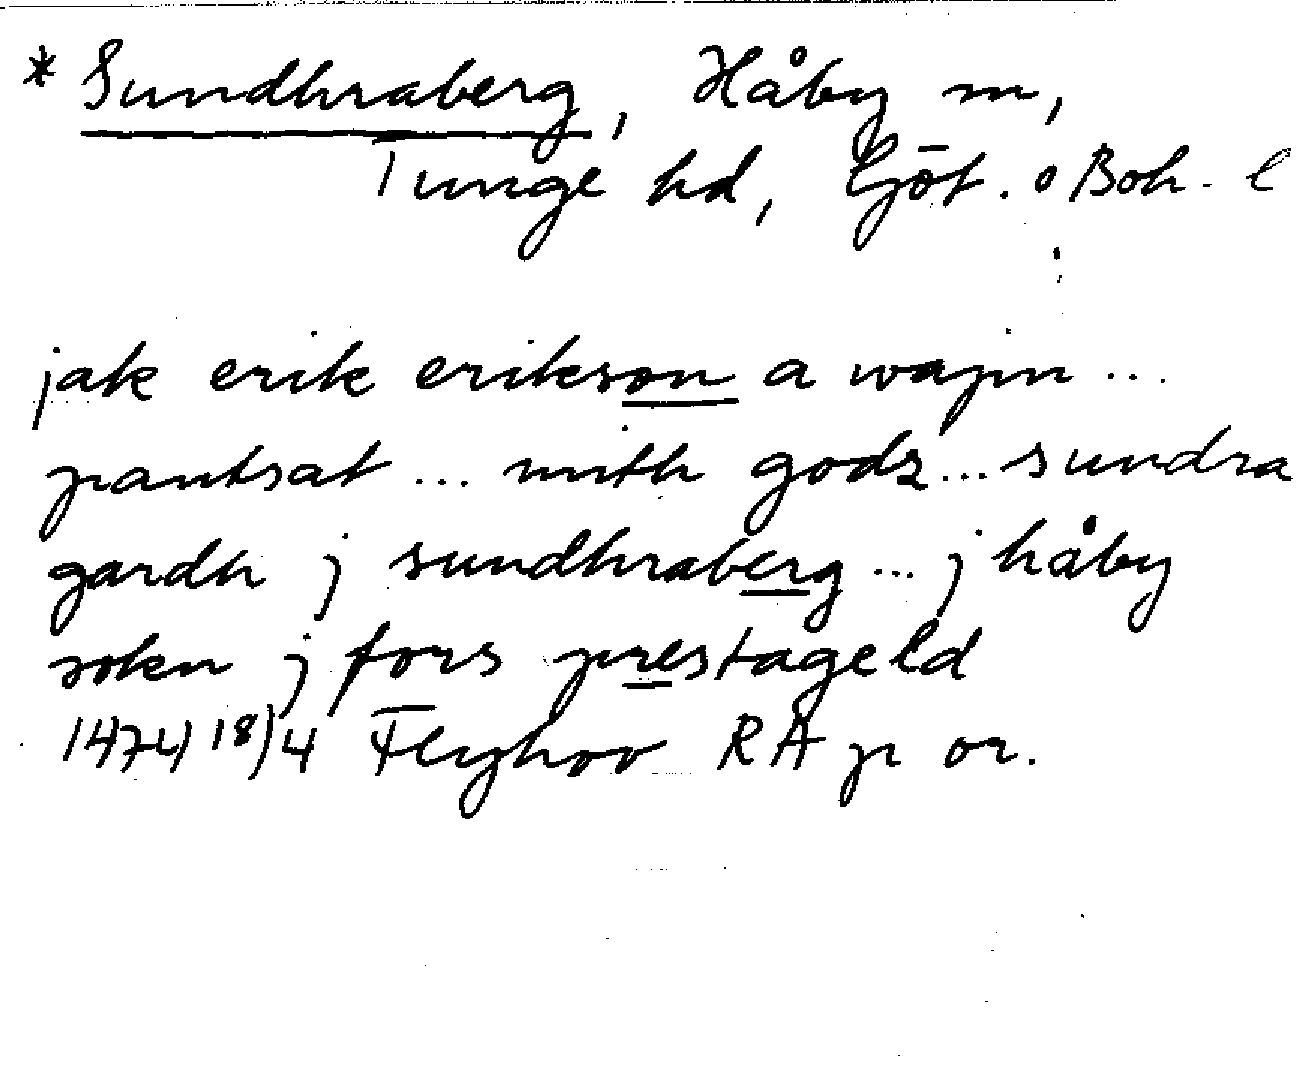 * Sundhraberg, Håby sn,
Tunge hd, Göt. o Boh. l
jak erik erikson a wapn ...
pantsat ... mith godz ... sundra
gardh j sundhraberg ... j håby
sokn j fors prestageld
1474 18/4 Flyhov RA p or.